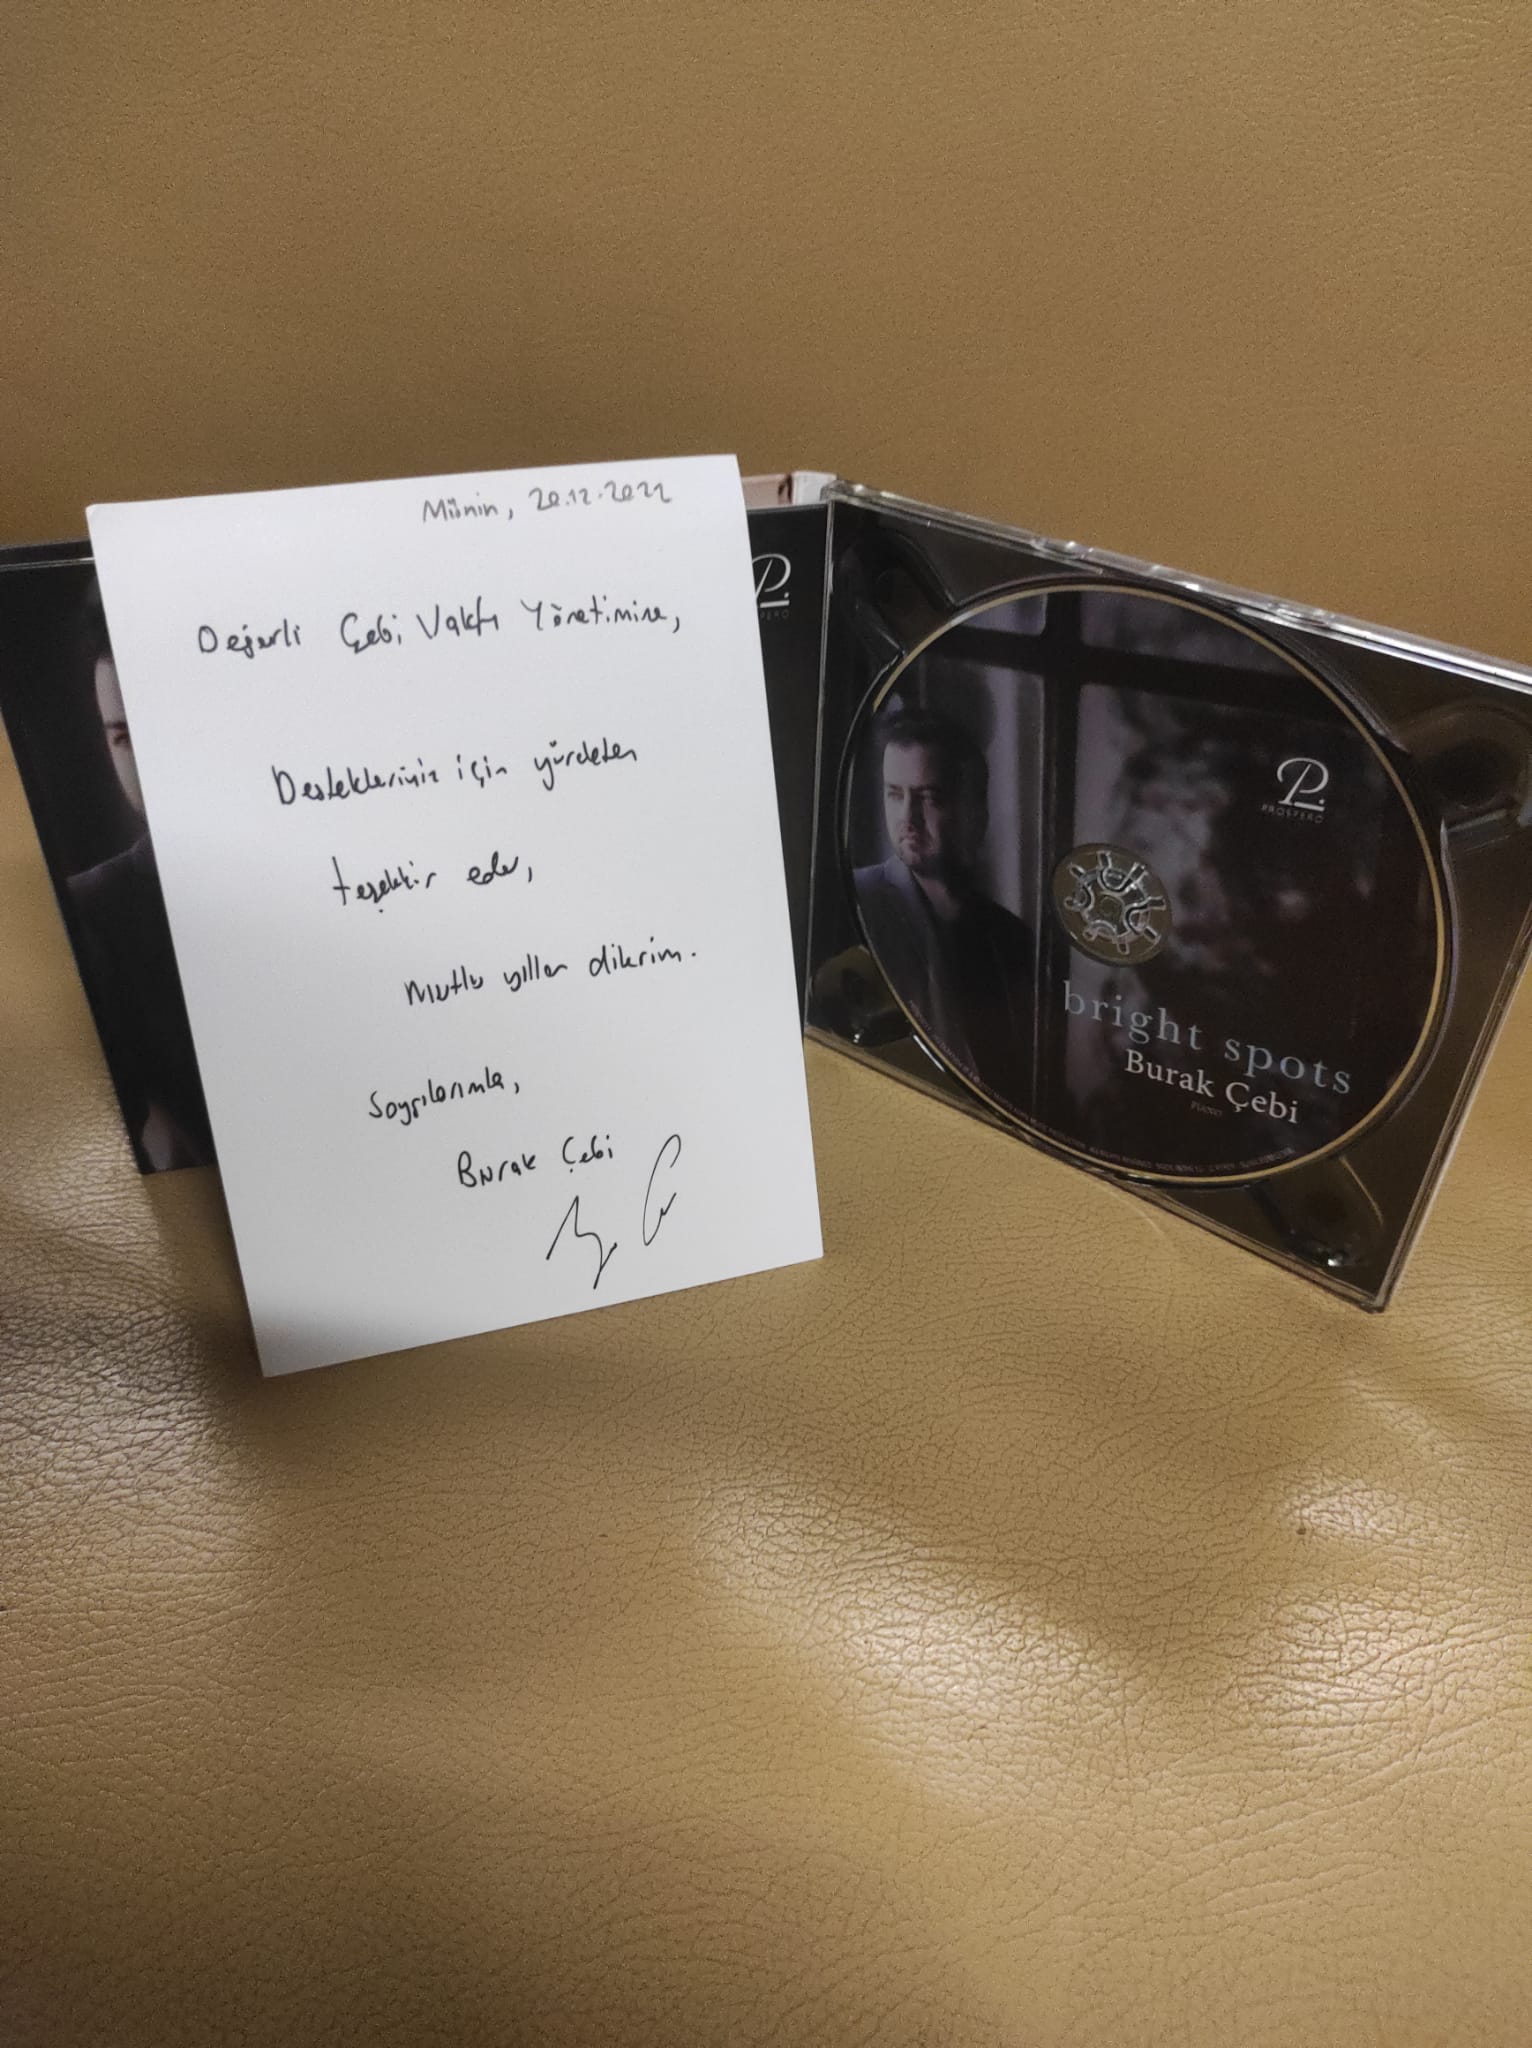 Münih, 20.12.2022
Değerli Çebi Vakfı Yönetimine,
Destekleriniz için yürekten
teşekkür eder,
mutlu yıllar dilerim.
Saygılarımla,
Burak Çebi
P.
PROSPERO
P.
PROSPERO
bright spots
Burak Çebi
PIANO